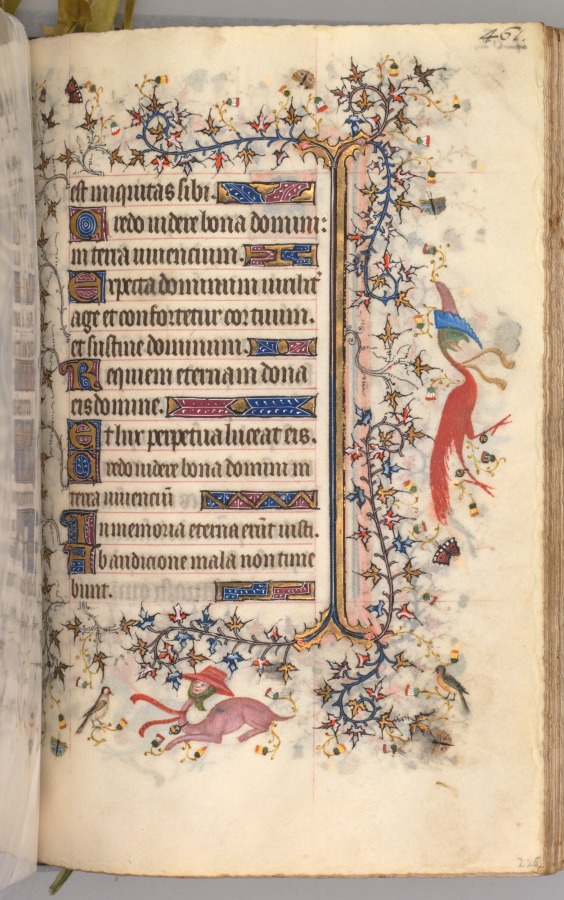 461.
est iniquitas sibi.
Credo videre bona domini:
in terra viventium.
Expecta dominum viriliter
age et confortetur cor tuum.
et sustine dominum.
Requiem eternam dona
eis domine.
Et lux perpetua luceat eis.
Credo videre bona domini in
terra viventiū
In memoria eterna erūt iusti.
Ab audicione mala non time
bunt.
225